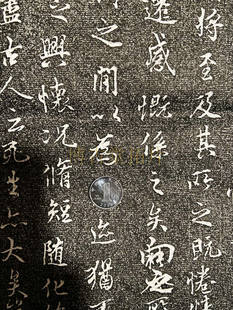 將至及其所之既惓
遷感慨係之矣向
之間以為迹猶
之興懷況脩短随化
古人云死生亦大矣